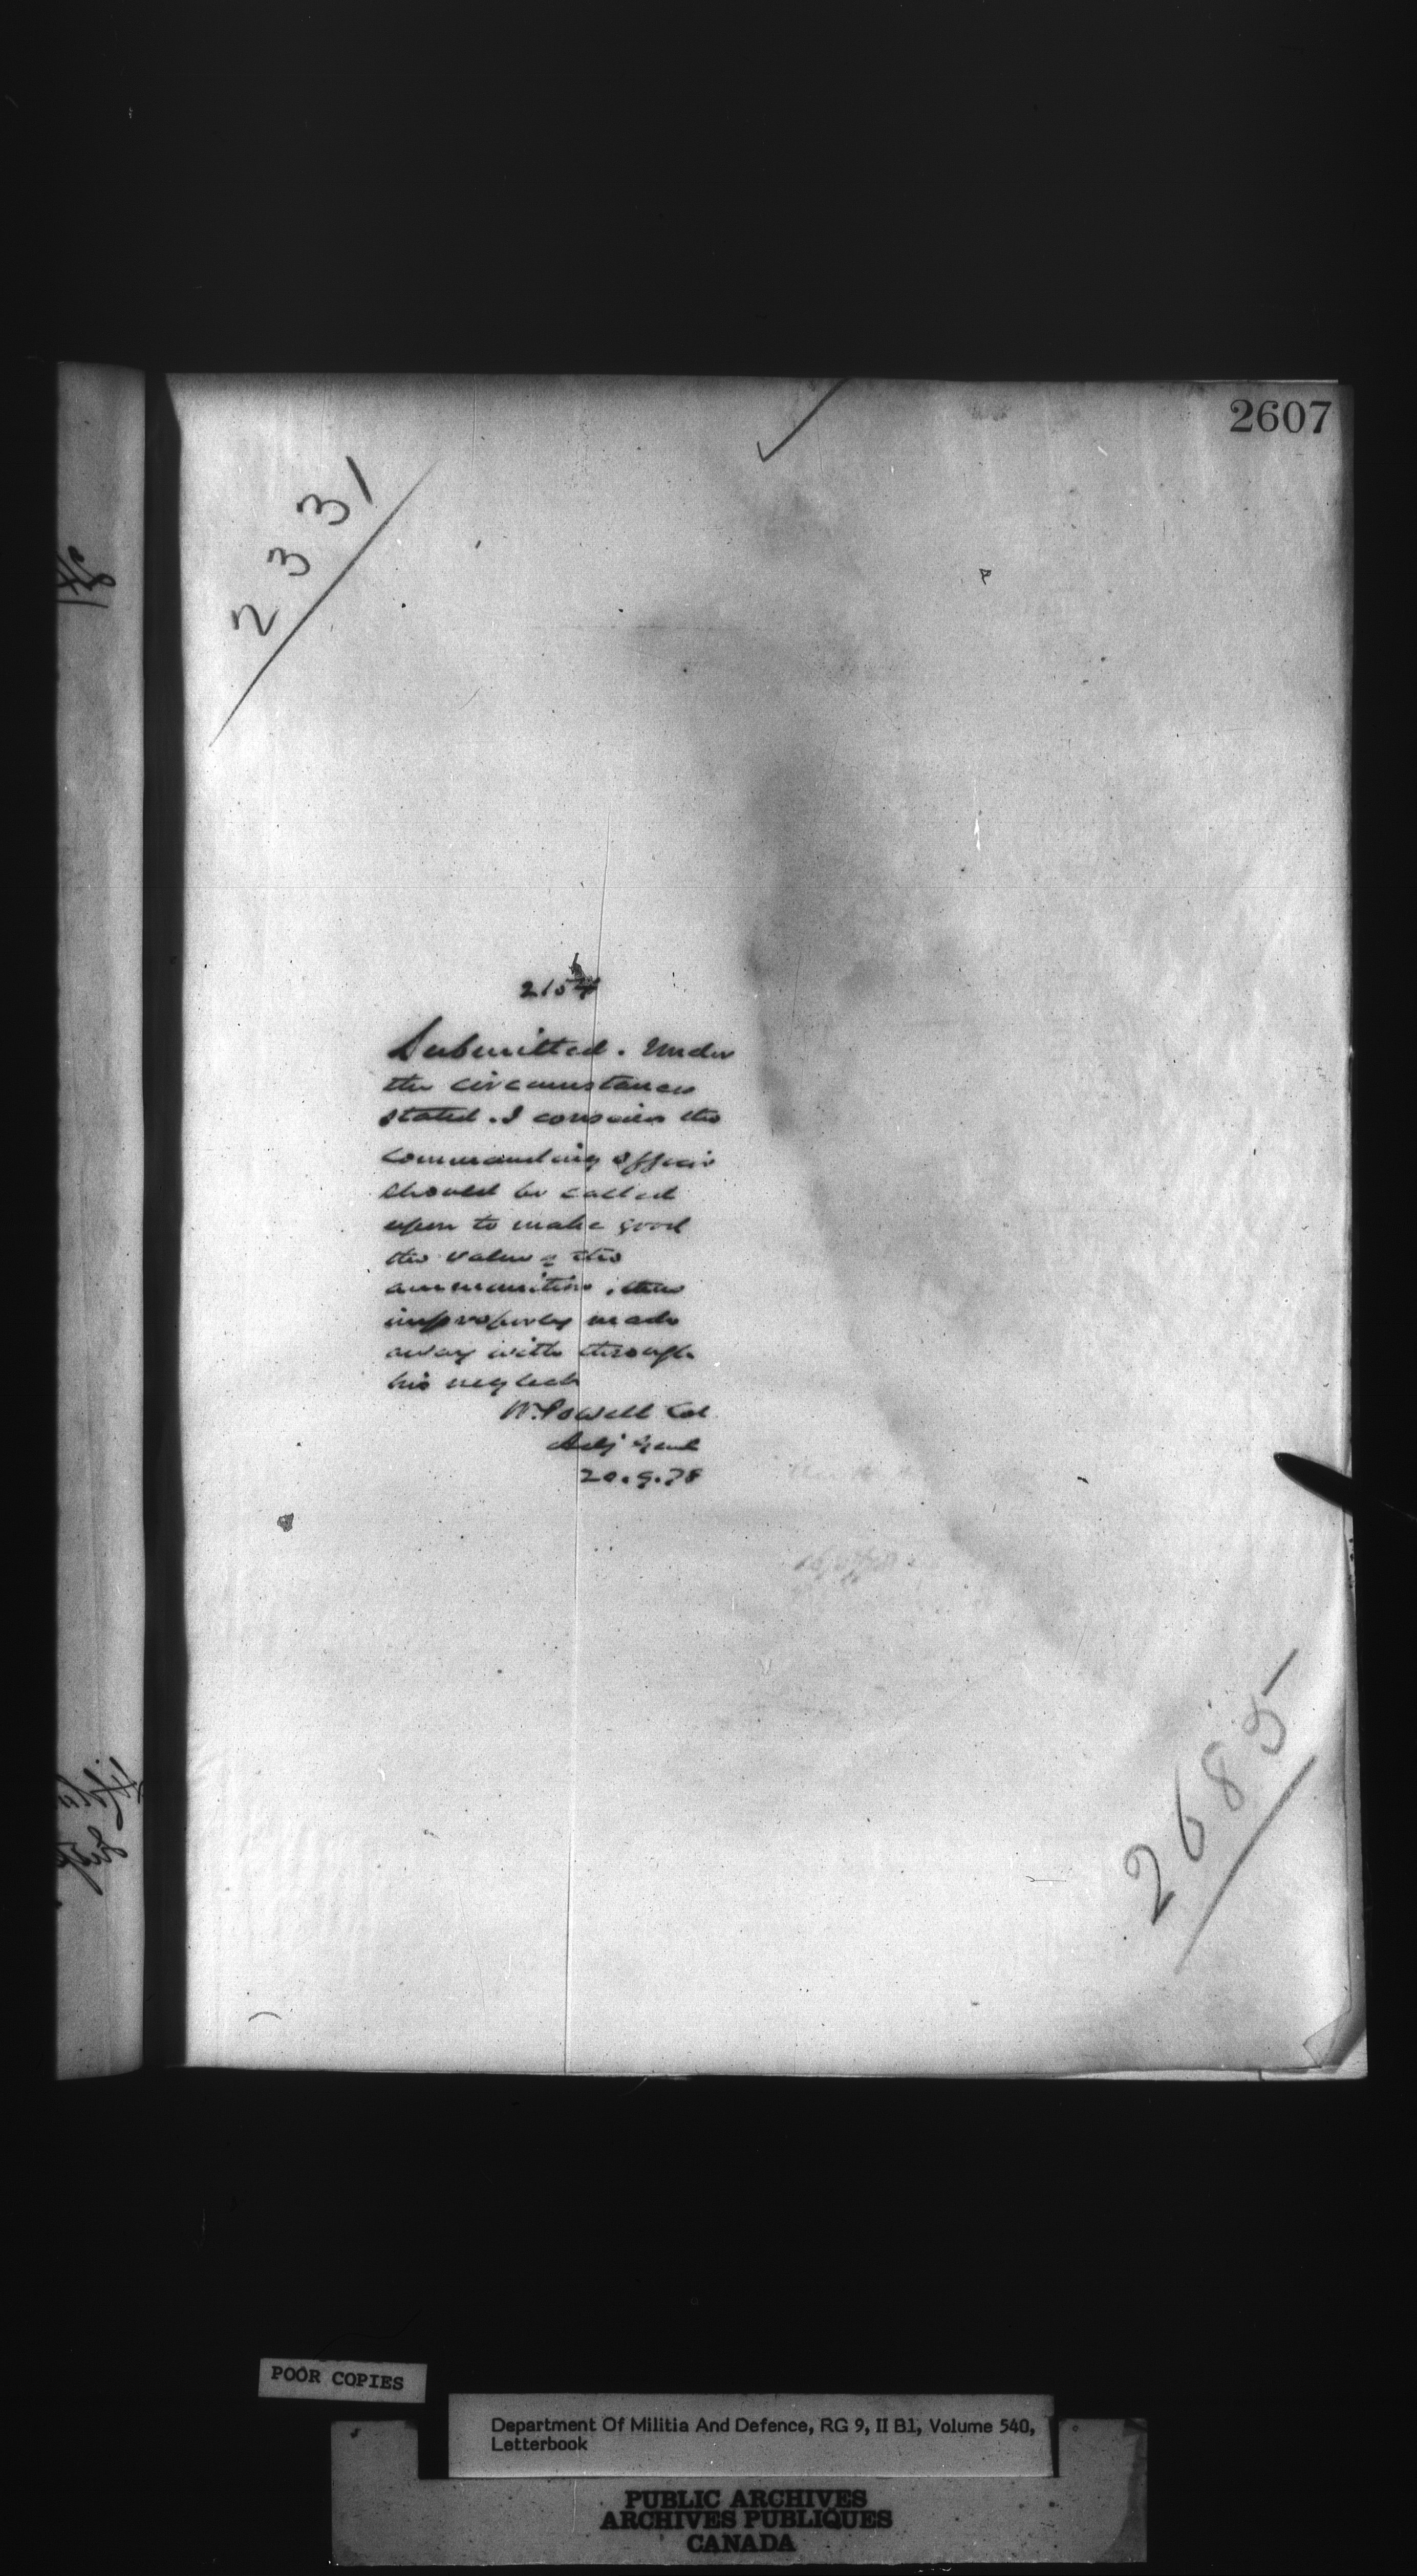 2607
2331
Submitted. Under
the circumstances
stated. I consider the
commanding officer
should be called
upon to make good
the value of the
ammunition, thus
improperly made
away with through
his neglect
W. Powell Col
Adj Genl
20.9.78
2685
POOR COPIES
Department Of Militia And Defence, RG 9, II B1, Volume 540,
Letterbook
PUBLIC ARCHIVES
ARCHIVES PUBLIQUES
CANADA